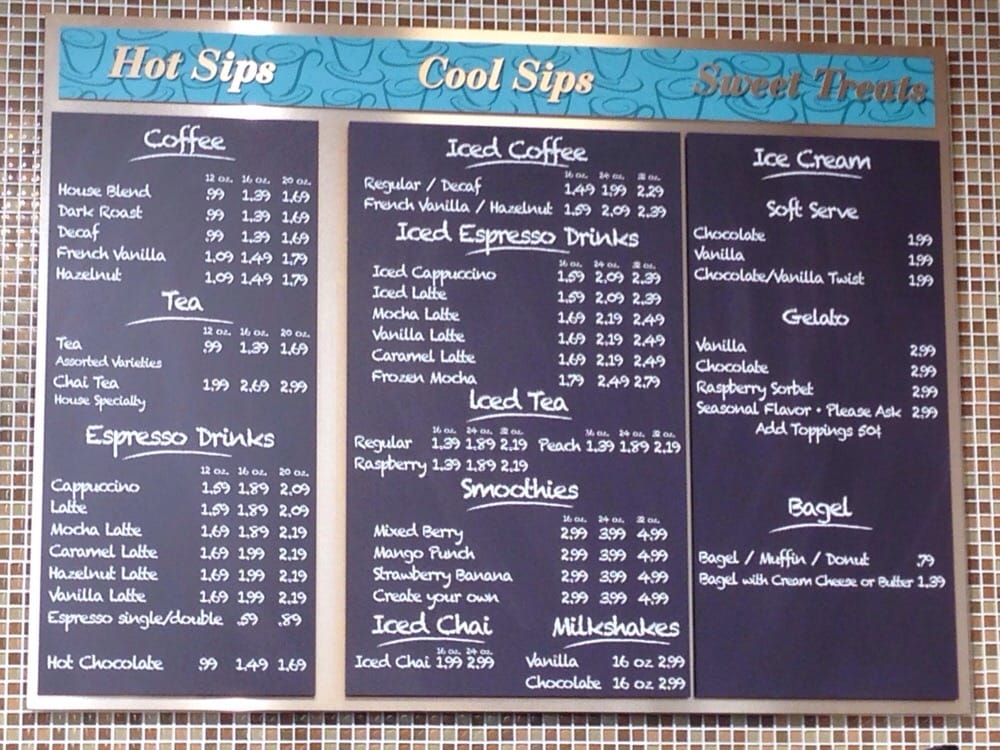 Hot Sips
Coffee
12 oz. 16 oz. 20 oz.
House Blend .99 1.39 1.69
Dark Roast .99 1.39 1.69
Decaf .99 1.39 1.69
French Vanilla 1.09 1.49 1.79
Hazelnut 1.09 1.49 1.79
Tea
12 oz. 16 oz. 20 oz.
Tea .99 1.39 1.69
Assorted Varieties
Chai Tea 1.99 2.69 2.99
House Specialty
Espresso Drinks
12 oz. 16 oz. 20 oz.
Cappuccino 1.59 1.89 2.09
Latte 1.59 1.89 2.09
Mocha Latte 1.69 1.89 2.19
Caramel Latte 1.69 1.99 2.19
Hazelnut Latte 1.69 1.99 2.19
Vanilla Latte 1.69 1.99 2.19
Espresso single/double .59 .89
Hot Chocolate .99 1.49 1.69
Cool Sips
Iced Coffee
16 oz. 24 oz. 32 oz.
Regular / Decaf 1.49 1.99 2.29
French Vanilla / Hazelnut 1.59 2.09 2.39
Iced Espresso Drinks
16 oz. 24 oz. 32 oz.
Iced Cappuccino 1.59 2.09 2.39
Iced Latte 1.59 2.09 2.39
Mocha Latte 1.69 2.19 2.49
Vanilla Latte 1.69 2.19 2.49
Caramel Latte 1.69 2.19 2.49
Frozen Mocha 1.79 2.49 2.79
Iced Tea
16 oz. 24 oz. 32 oz. 16 oz. 24 oz. 32 oz.
Regular 1.39 1.89 2.19 Peach 1.39 1.89 2.19
Raspberry 1.39 1.89 2.19
Smoothies
16 oz. 24 oz. 32 oz.
Mixed Berry 2.99 3.99 4.99
Mango Punch 2.99 3.99 4.99
Strawberry Banana 2.99 3.99 4.99
Create your own 2.99 3.99 4.99
Iced Chai
16 oz. 24 oz.
Iced Chai 1.99 2.99
Milkshakes
Vanilla 16 oz 2.99
Chocolate 16 oz 2.99
Sweet Treats
Ice Cream
Soft Serve
Chocolate 1.99
Vanilla 1.99
Chocolate/Vanilla Twist 1.99
Gelato
Vanilla 2.99
Chocolate 2.99
Raspberry Sorbet 2.99
Seasonal Flavor • Please Ask 2.99
Add Toppings 50¢
Bagel
Bagel / Muffin / Donut .79
Bagel with Cream Cheese or Butter 1.39